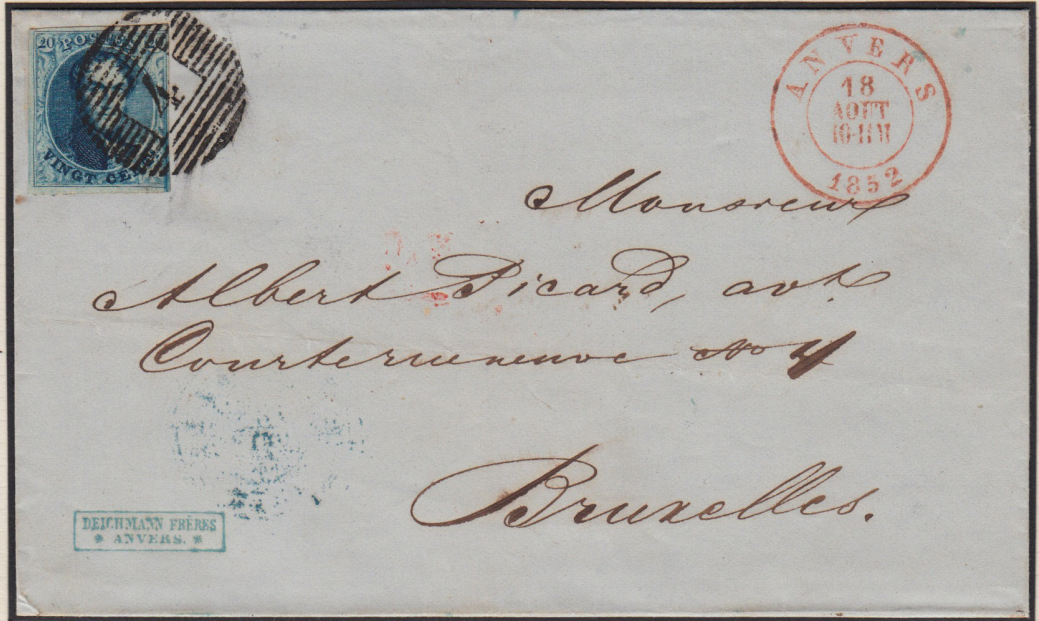 20 POSTES 20
VINGT CEN
4
ANVERS
18
AOUT
10-11M
1852
Monsieur
Albert Picard, avt
Courterueneuve No 4
Bruxelles.
DEICHMANN FRÈRES
* ANVERS. *